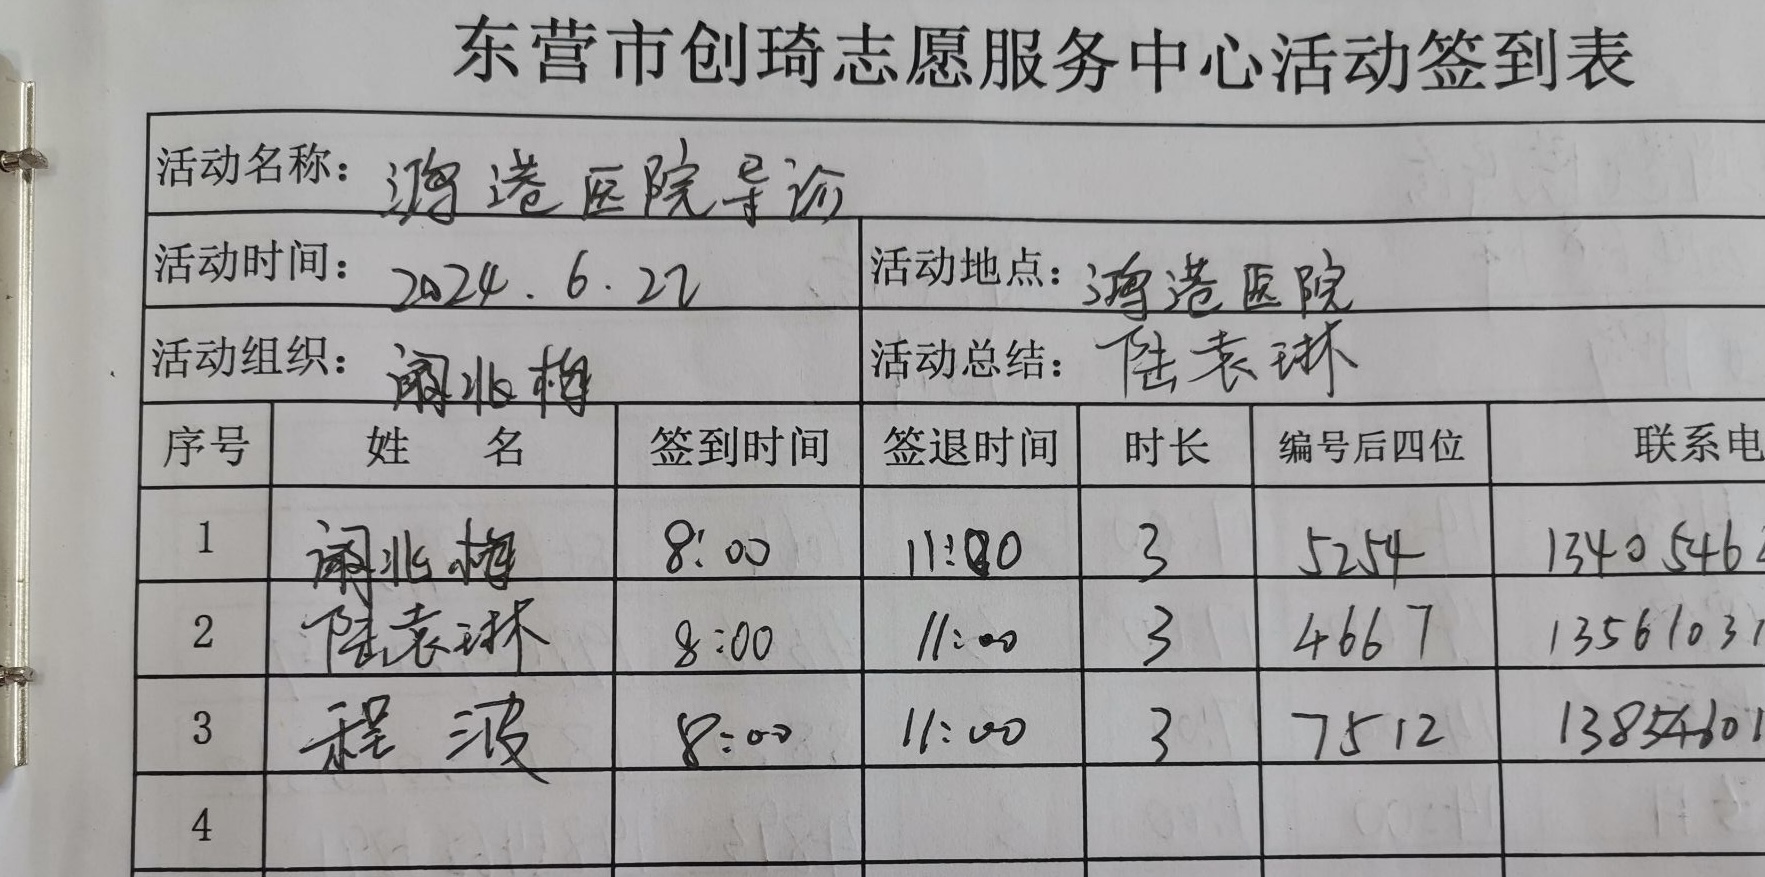 东营市创琦志愿服务中心活动签到表
活动名称: 鸿港医院导诊
活动时间: 2024.6.22 活动地点: 鸿港医院
活动组织: 兆梅 活动总结: 陆袁琳
序号 姓名 签到时间 签退时间 时长 编号后四位 联系电
1 兆梅 8:00 11:00 3 5254 1340546
2 陆袁琳 8:00 11:00 3 4667 13561031
3 程波 8:00 11:00 3 7512 13854601
4